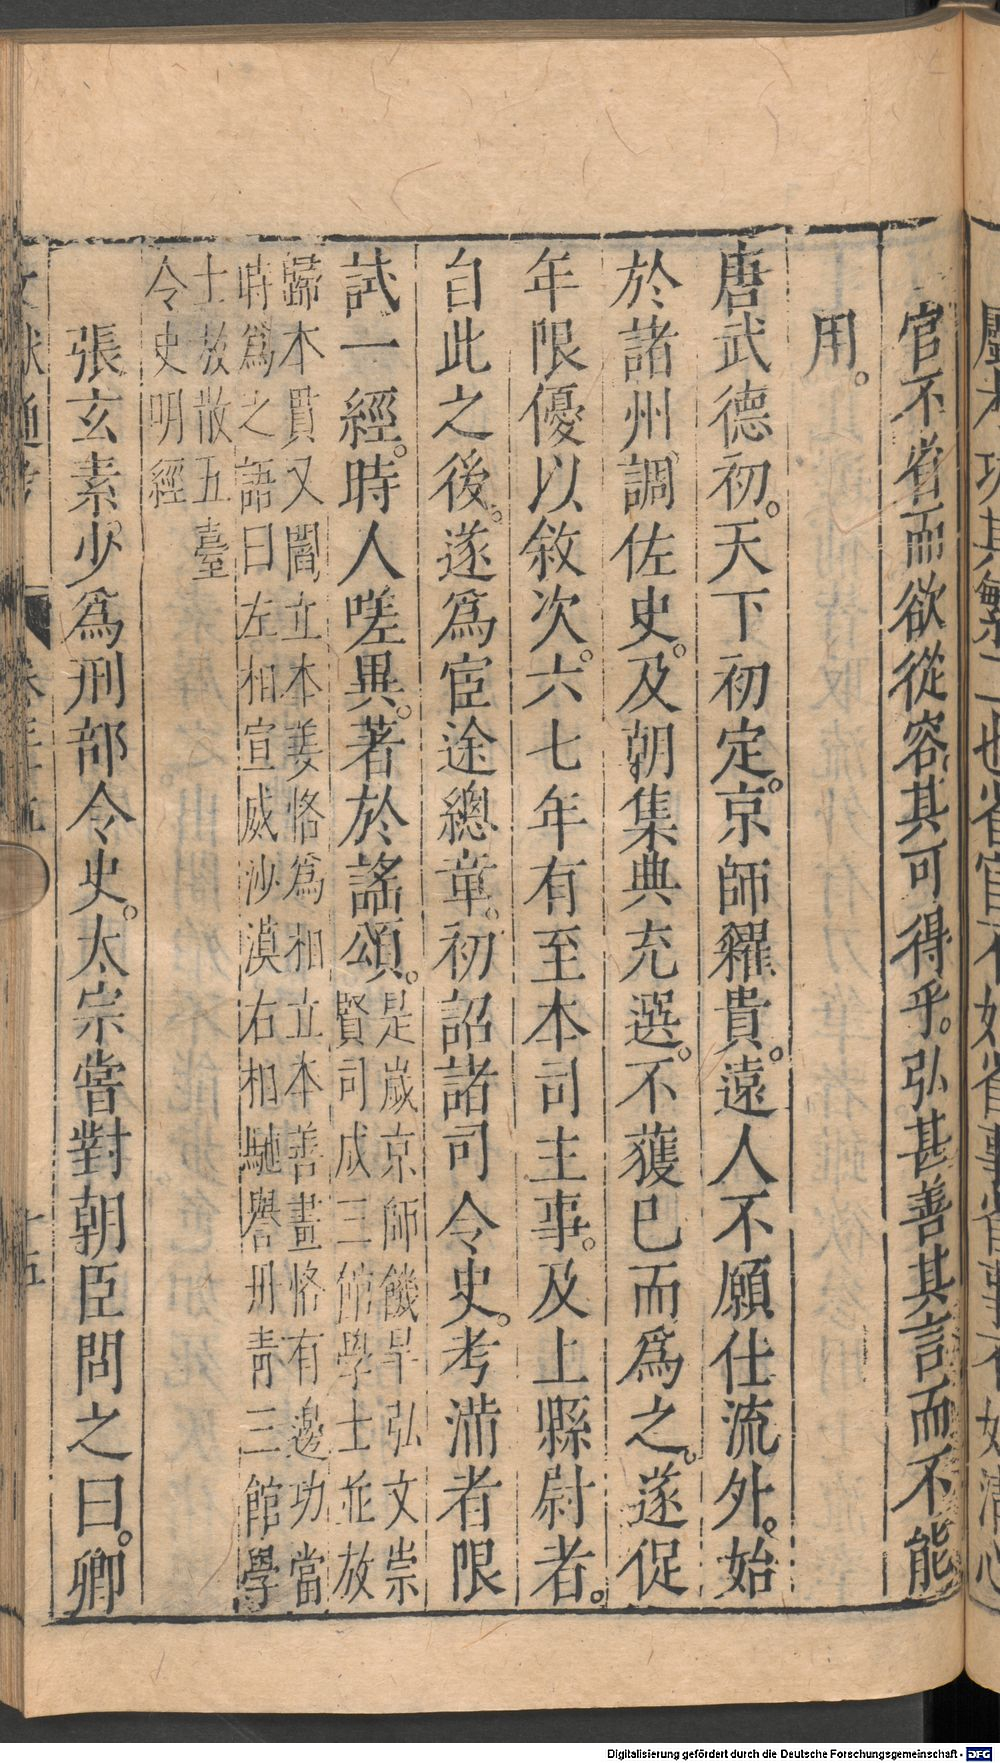 官不省而欲從容其可得乎。弘甚善其言而不能
用。
唐武德初。天下初定。京師糴貴。遠人不願仕流外。始
於諸州調佐史。及朝集典充選。不獲已而爲之。遂促
年限優以敘次。六七年有至本司主事。及上縣尉者。
自此之後。遂爲宦途總章。初詔諸司令史。考滿者限
試一經。時人嗟異。著於謠頌。是歲京師饑旱弘文崇
賢司成三館學士並放
歸本貫又閻立本姜恪爲相立本善畫恪有邊功當
時爲之語曰左相宣威沙漠右相馳譽丹青三館學
士放散五臺
令史明經
張玄素少爲刑部令史。太宗嘗對朝臣問之曰。卿
文獻通考
十五
Digitalisierung gefördert durch die Deutsche Forschungsgemeinschaft - DFG